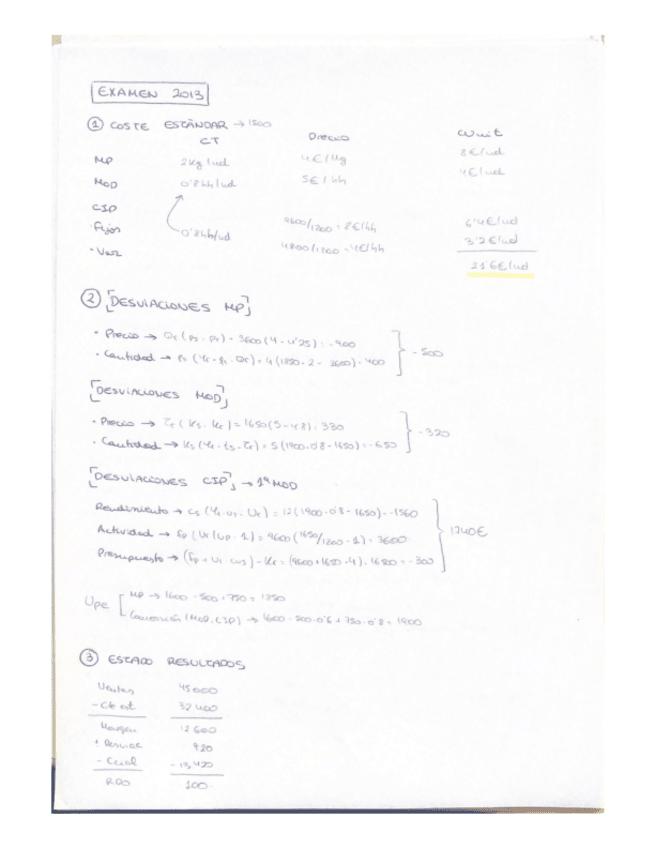 EXAMEN 2013
① COSTE ESTÁNDAR → 1500
CT Precio C unit
MP 2kg/ud 4€/kg 8€/ud
MOD 0'8hh/ud 5€/hh 4€/ud
CIP
· Fijos 0'8hh/ud 9600/1200 = 8€/hh 6'4€/ud
· Var 4800/1200 = 4€/hh 3'2€/ud
21'6€/ud
② [DESVIACIONES MP]
· Precio → 3600(4 - 4'25) = -900
· Cantidad → 400
- 500
[DESVIACIONES MOD]
· Precio → = 1650(5-4'8) = 330
· Cantidad → = 5(1900·0'8 - 1650) = -650
-320
[DESVIACIONES CIP] → 1ª MOD
Rendimiento → = 12(1900·0'8 - 1650) = -1560
Actividad → = 9600(1650/1200 - 1) = 3600
Presupuesto → = (9600+1650·4) - 16500 = -300
1740€
Upe
MP → 1600 - 500 + 750 = 1850
Conversión (MOD, CIP) → 1600 - 500·0'6 + 750·0'8 = 1900
③ ESTADO RESULTADOS
Ventas 45000
- Cte est 32400
Margen 12600
+ Desviac 920
- Ccial - 13,420
RDO 100